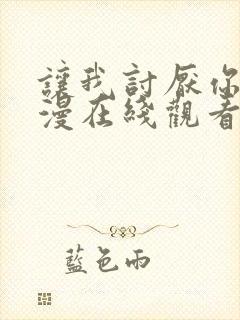 讓我討厭你
漫在綫觀看
藍色雨